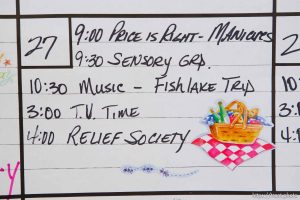 27
9:00 PRICE IS RIGHT - MANICURES
9:30 SENSORY GRP.
10:30 MUSIC - FISHLAKE TRIP
3:00 T.V. TIME
4:00 RELIEF SOCIETY
2